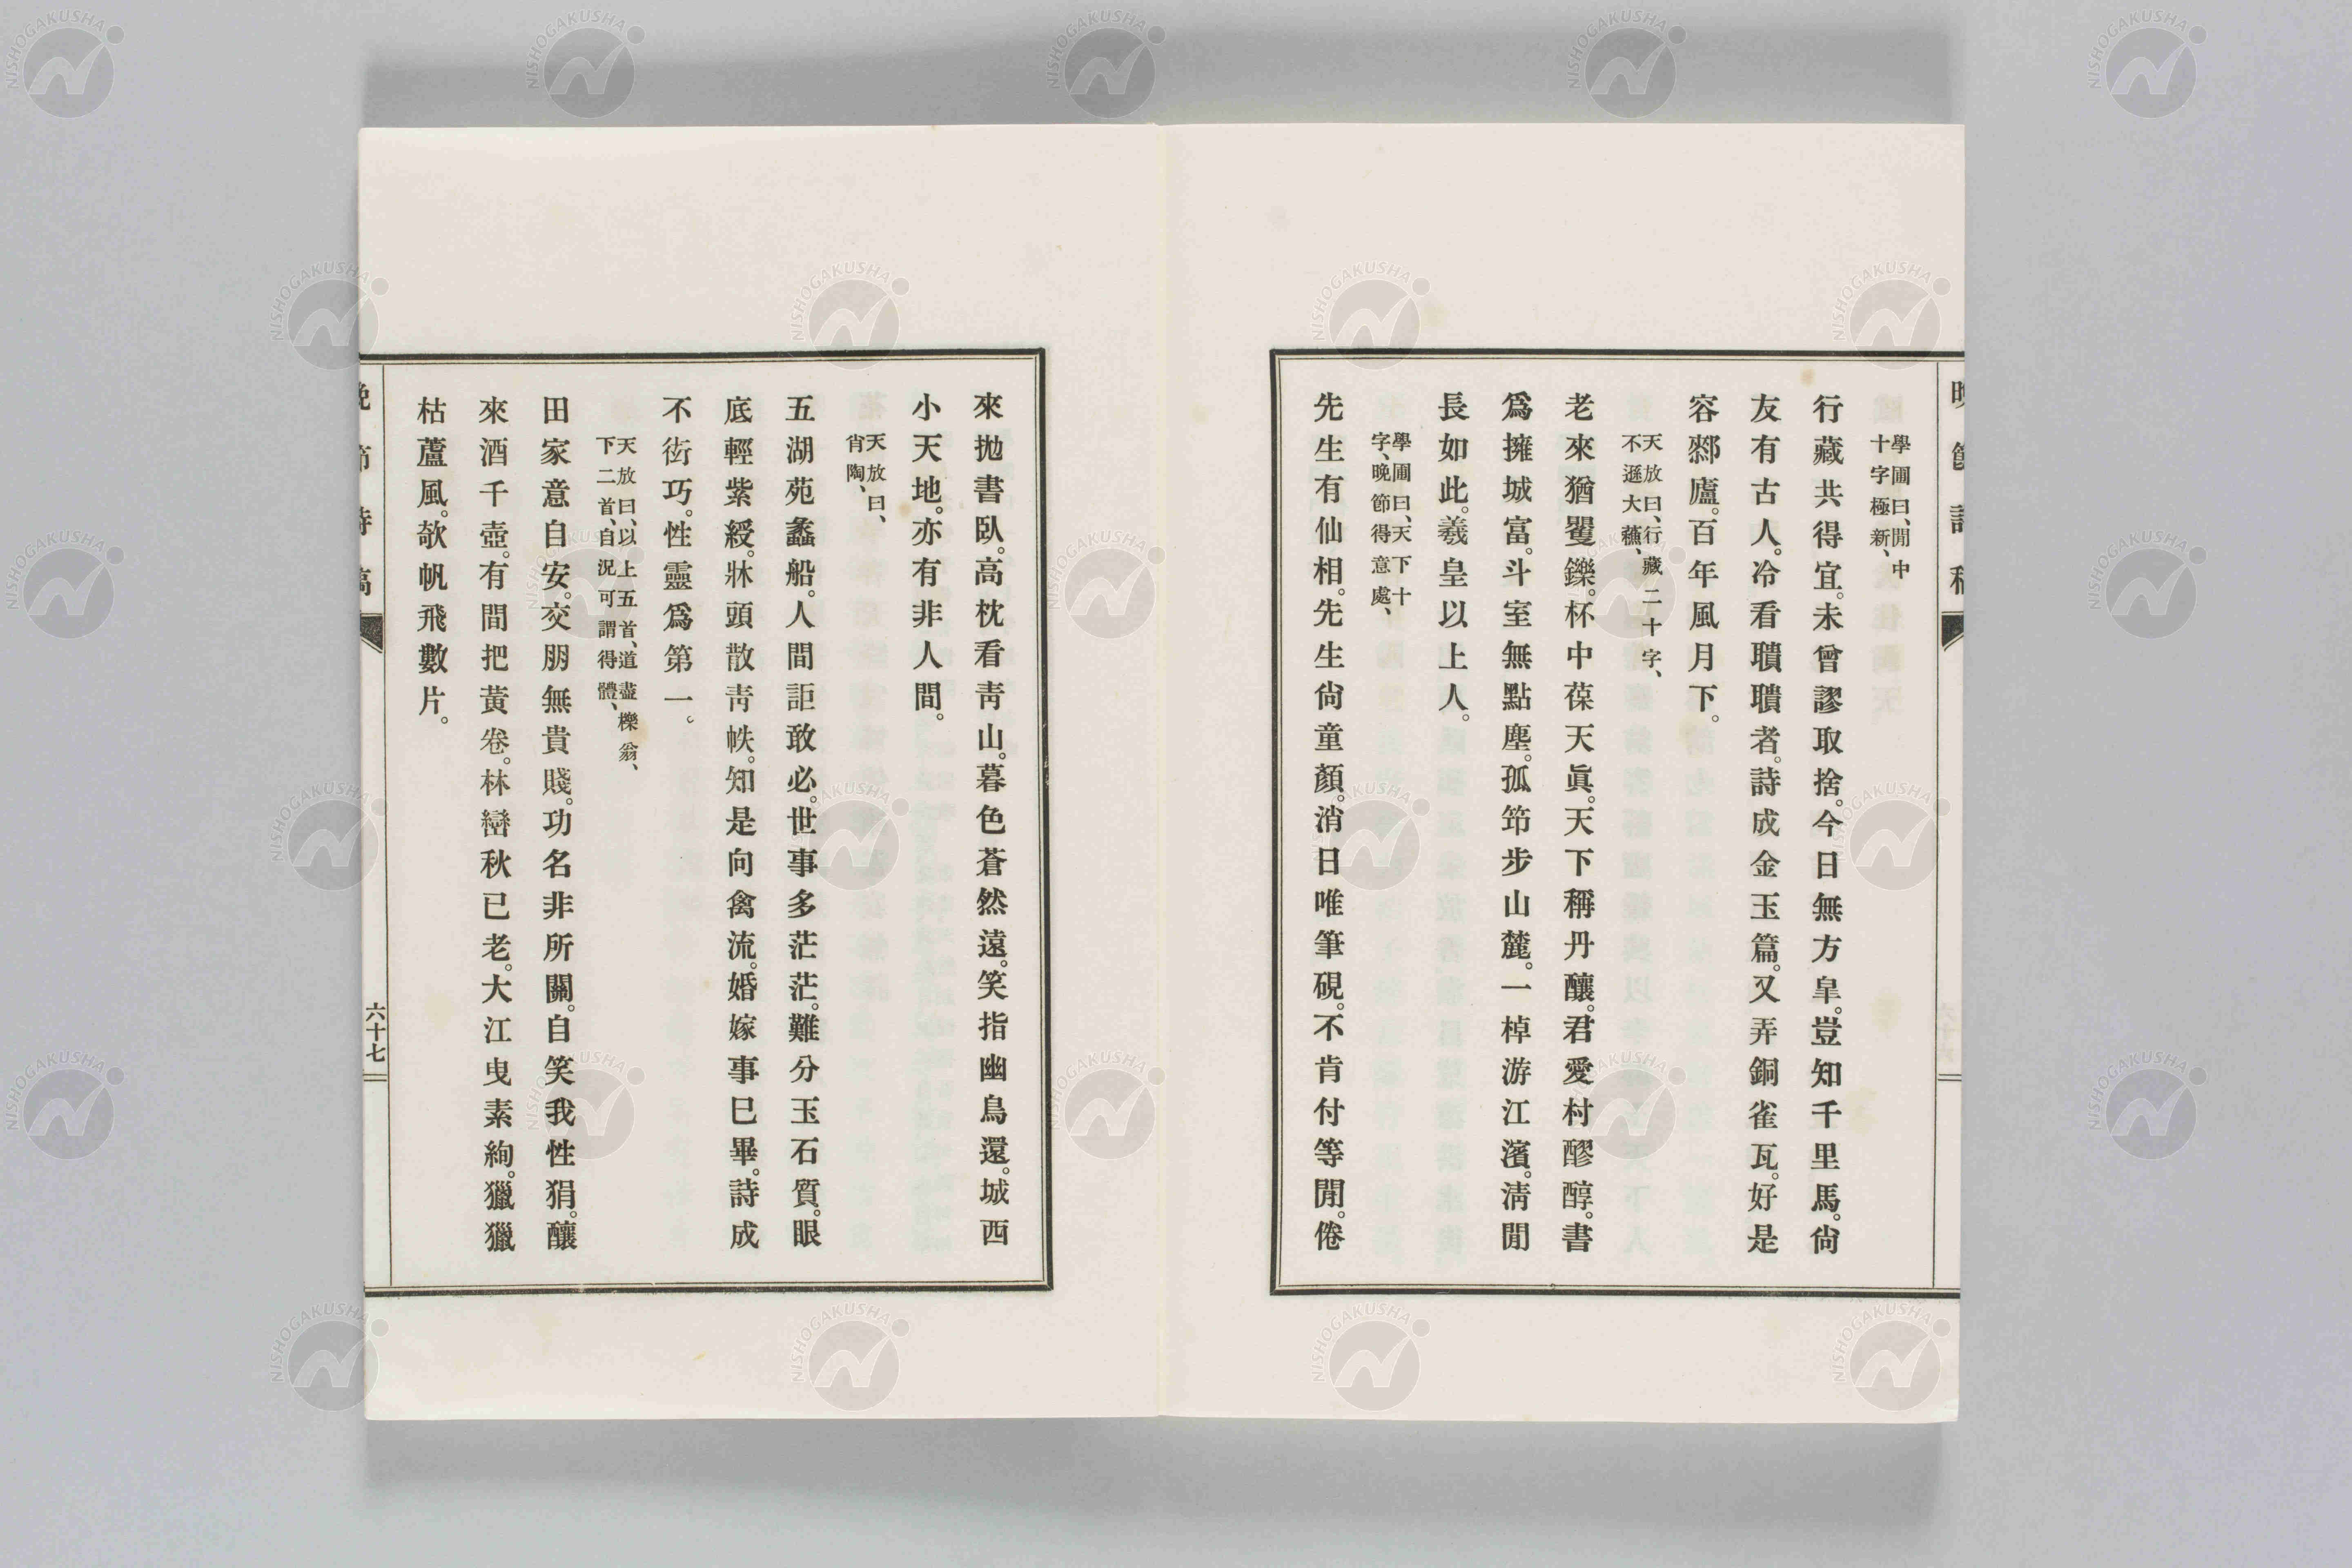 晚節詩稿
學圃曰、閒中
十字極新、
行藏共得宜。未曾謬取捨。今日無方皐。豈知千里馬。尙
友有古人。冷看聵聵者。詩成金玉篇。又弄銅雀瓦。好是
容鄰廬。百年風月下。
天放曰、行藏二十字、
不遜大蘓、
老來猶矍鑠。杯中葆天眞。天下稱丹釀。君愛村醪醇。書
爲擁城富。斗室無點塵。孤筇步山麓。一棹游江濱。淸閒
長如此。羲皇以上人。
學圃曰、天下十
字、晚節得意處、
先生有仙相。先生尙童顏。消日唯筆硯。不肯付等閒。倦
來拋書臥。高枕看靑山。暮色蒼然遠。笑指幽鳥還。城西
小天地。亦有非人間。
天放曰、
肖陶、
五湖苑蠡船。人間詎敢必。世事多茫茫。難分玉石質。眼
底輕紫綬。牀頭散靑帙。知是向禽流。婚嫁事巳畢。詩成
不衒巧。性靈爲第一。
天放曰、以上五首、道盡櫟翁、
下二首、自況可謂得體、
田家意自安。交朋無貴賤。功名非所關。自笑我性狷。釀
來酒千壺。有間把黃卷。林巒秋已老。大江曳素絢。獵獵
枯蘆風。欹帆飛數片。
晚節詩稿
六十七
NISHOGAKUSHA